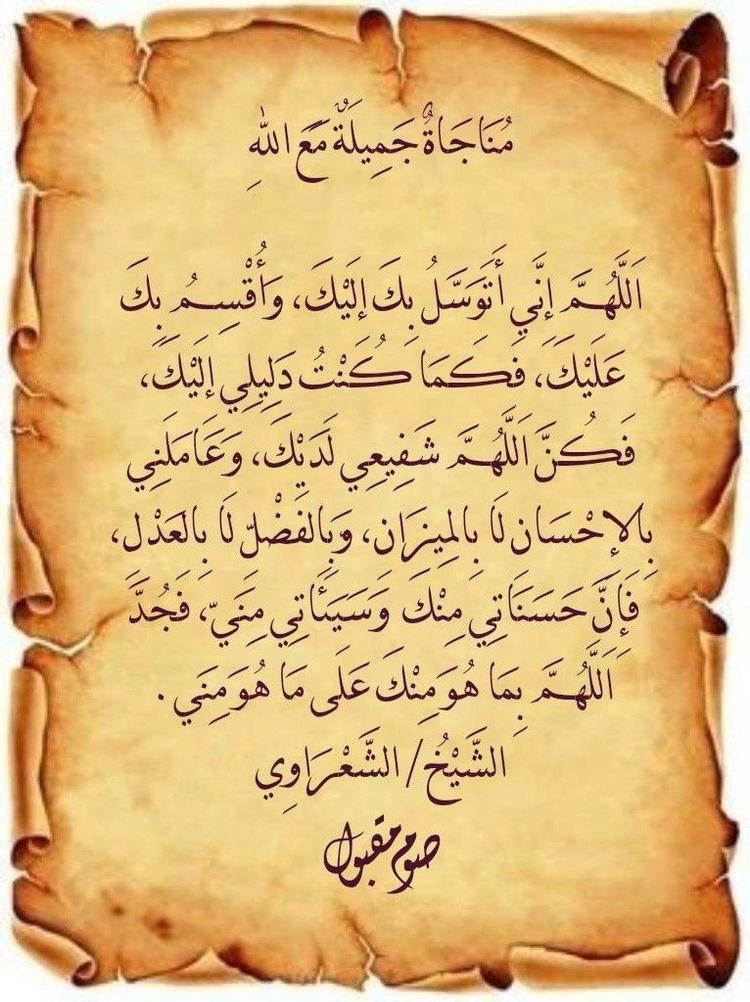 مُنَاجَاةٌ جَمِيلَةٌ مَعَ اللهِ
اَللَّهُمَّ إِنَّي أَتَوَسَّلُ بِكَ إِلَيْكَ، وَأُقْسِمُ بِكَ
عَلَيْكَ، فَكَمَا كُنْتُ دَلِيلِي إِلَيْكَ،
فَكُنَّ اَللَّهُمَّ شَفِيعِي لَدَيْكَ، وَعَامَلَنِي
بِالإحْسَانِ لَا بِالمِيزَانِ، وَبِالفَضْلِ لَا بِالعَدْلِ،
فَإِنَّ حَسَنَاتِي مِنْكَ وَسَيِّئَاتِي مِنَيّ، فَجُدَّ
اَللَّهُمَّ بِمَا هُوَ مِنْكَ عَلَى مَا هُوَ مِنَي .
الشَّيْخُ/ الشَّعْرَاوِي
صوم مقبول